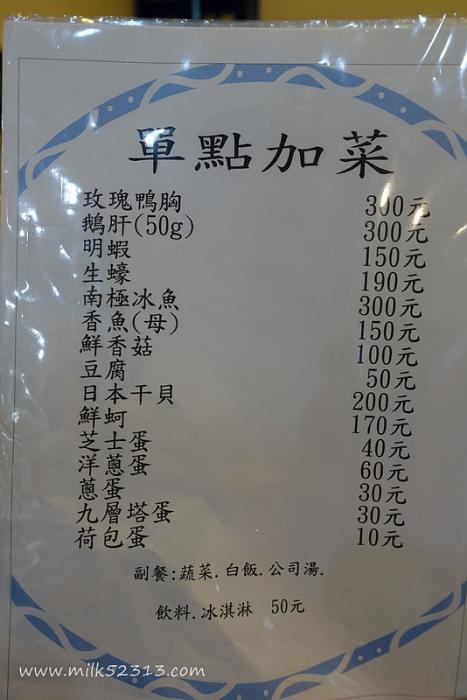 單點加菜
玫瑰鴨胸 300元
鵝肝(50g) 300元
明蝦 150元
生蠔 190元
南極冰魚 300元
香魚(母) 150元
鮮香菇 100元
豆腐 50元
日本干貝 200元
鮮蚵 170元
芝士蛋 40元
洋蔥蛋 60元
蔥蛋 30元
九層塔蛋 30元
荷包蛋 10元
副餐:蔬菜.白飯.公司湯.
飲料.冰淇淋 50元
www.milk52313.com